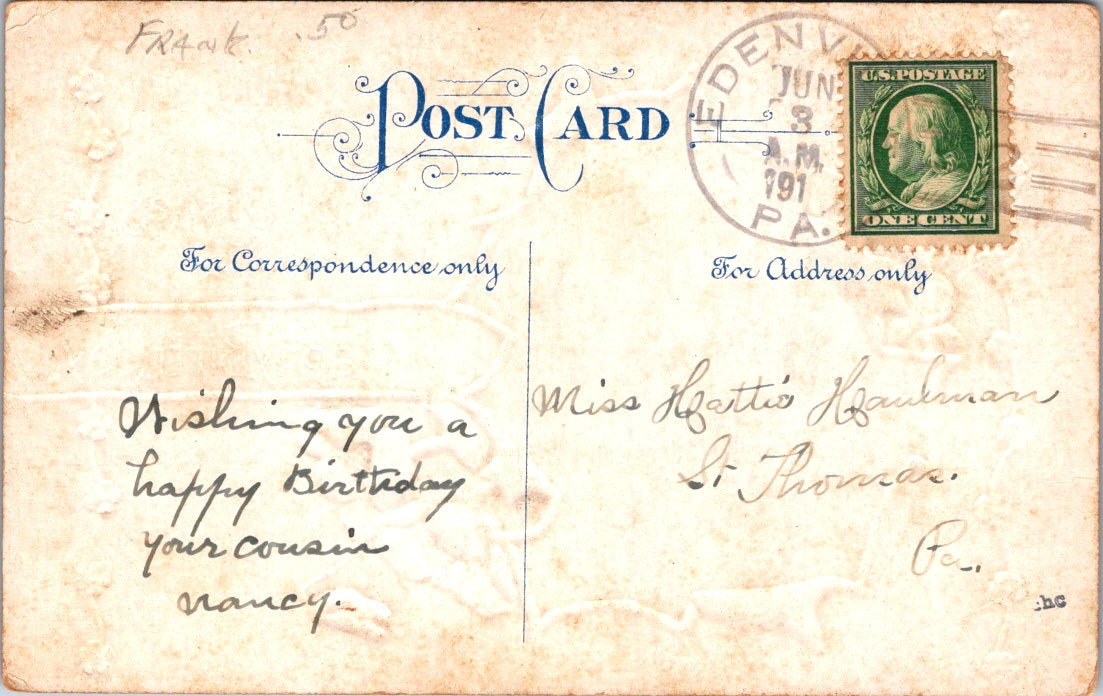 FRANK. .50
POST CARD
EDENV
JUN
3
A.M.
191
PA.
U.S.POSTAGE
ONE CENT
For Correspondence only
For Address only
Wishing you a
happy Birthday
your cousin
nancy.
Miss Hattie
St Thomas.
Pa.